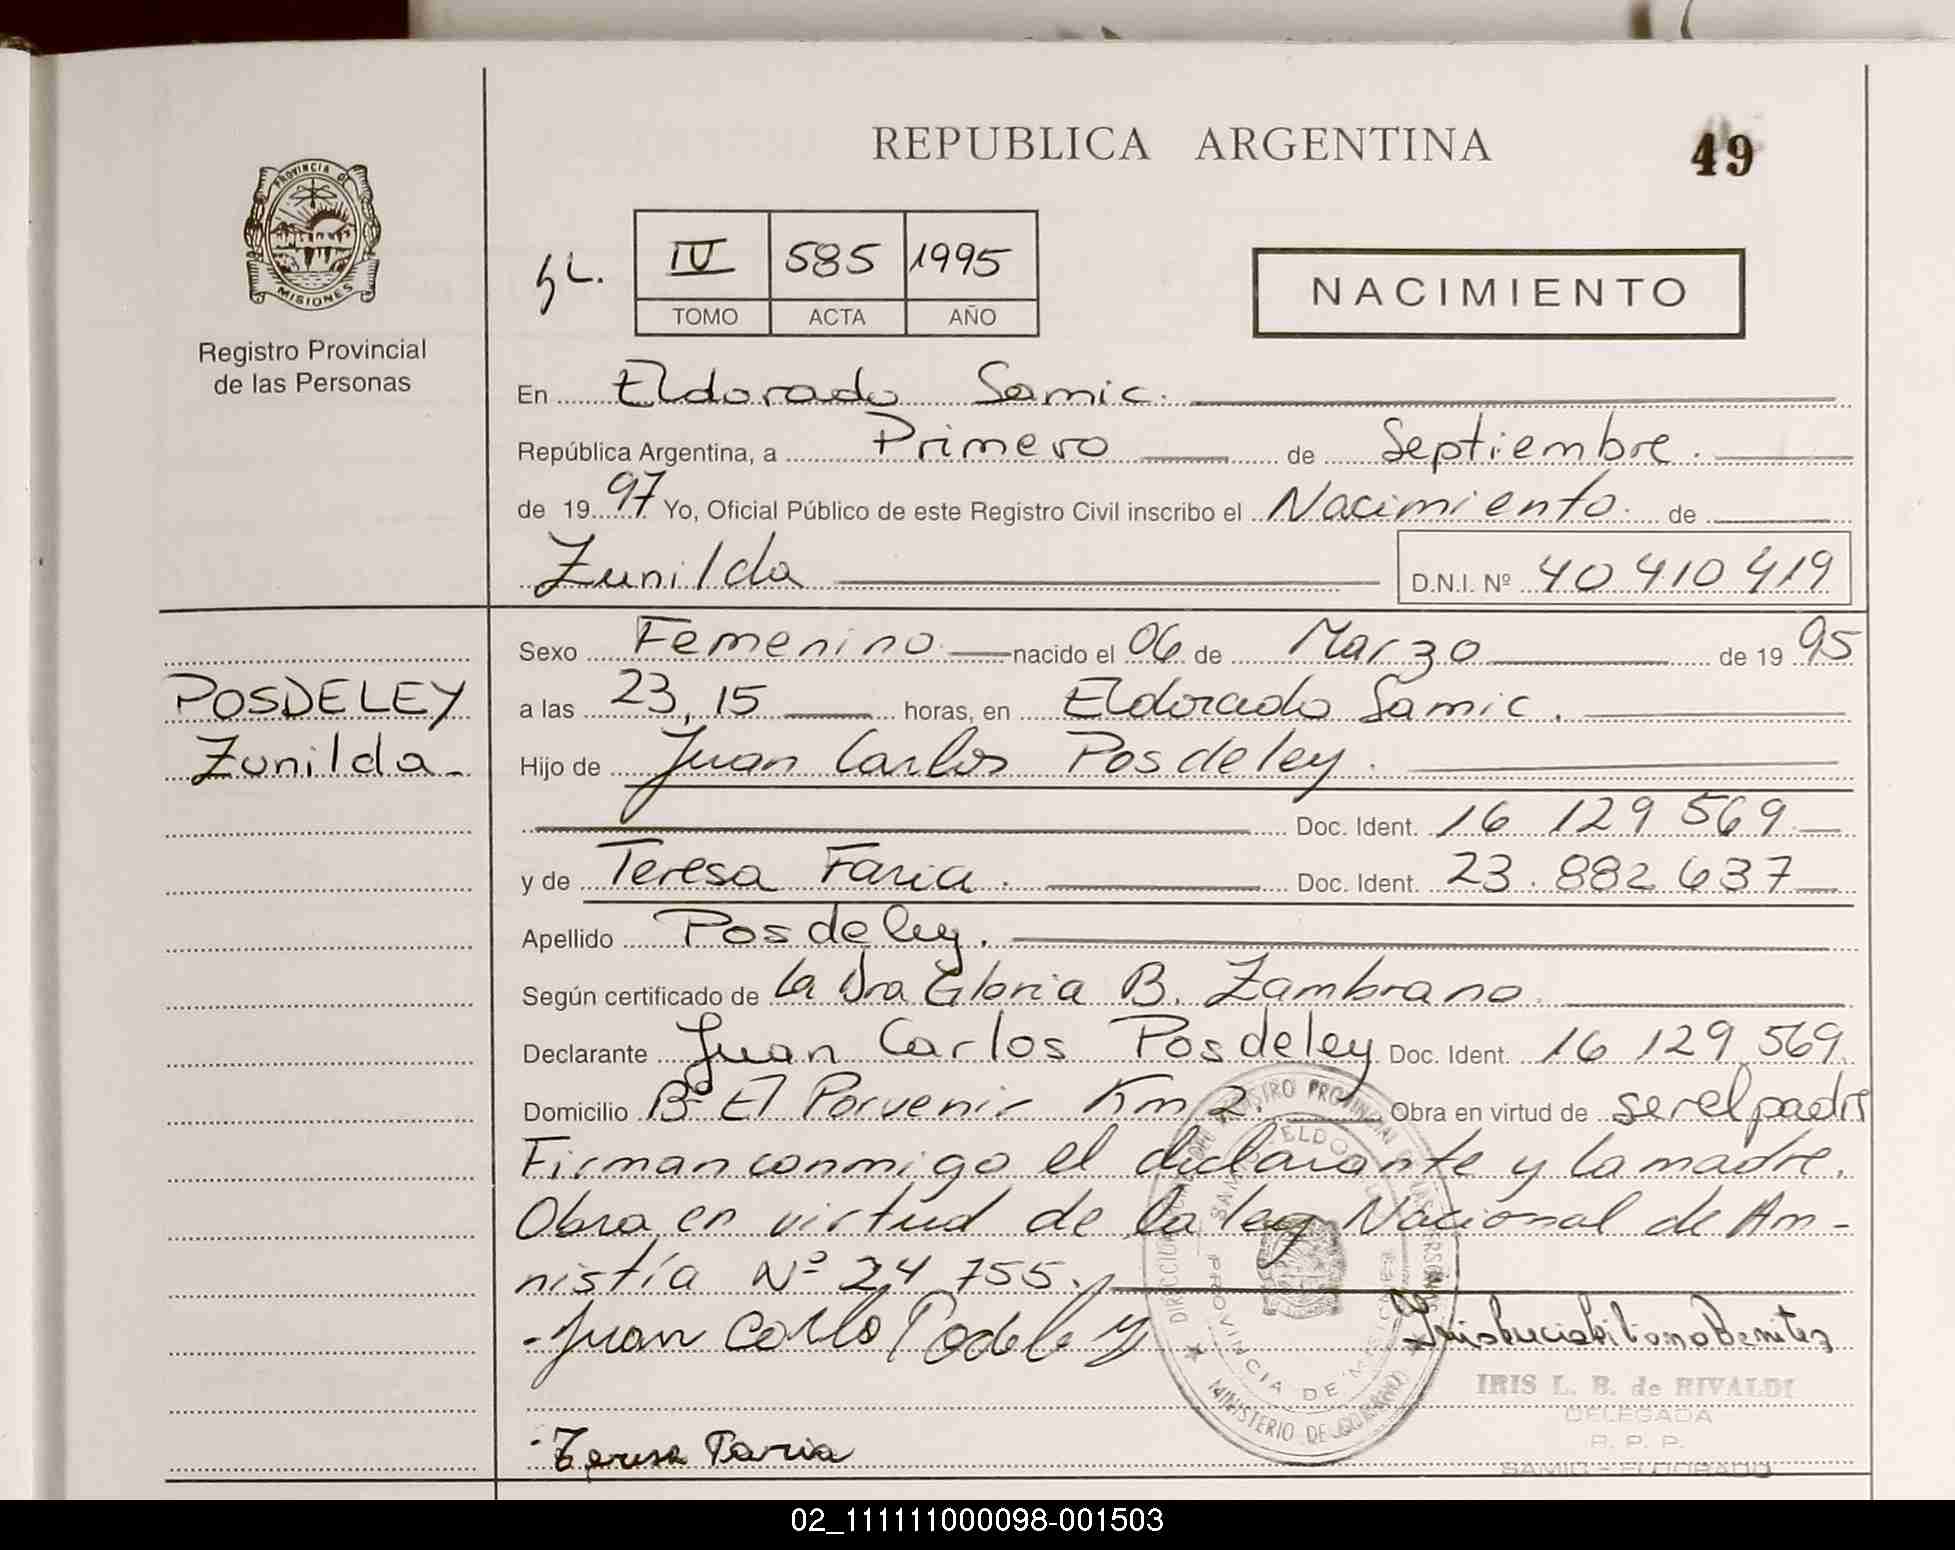 REPUBLICA ARGENTINA
49
PROVINCIA DE
MISIONES
Registro Provincial
de las Personas
IV 585 1995
TOMO ACTA AÑO
NACIMIENTO
En Eldorado Samic.
República Argentina, a Primero de Septiembre.
de 1997 Yo, Oficial Público de este Registro Civil inscribo el Nacimiento. de
Zunilda D.N.I. Nº 40 410 419
Sexo Femenino nacido el 06 de Marzo de 1995
POSDELEY
a las 23,15 horas, en Eldorado Samic.
Zunilda
Hijo de Juan Carlos Posdeley.
Doc. Ident. 16 129 569
y de Teresa Faria. Doc. Ident. 23.882 637
Apellido Posdeley.
Según certificado de la Dra Gloria B. Zambrano.
Declarante Juan Carlos Posdeley Doc. Ident. 16 129 569
Domicilio Bº El Porvenir Km 2. Obra en virtud de ser el padre
Firman conmigo el declarante y la madre.
Obra en virtud de la ley Nacional de Am-
nistía Nº 24 755.
Juan Carlo Podeley
IRIS L. B. de RIVALDI
DELEGADA
R. P. P.
SAMIC - ELDORADO
Teresa Faria
PROVINCIA DE MISIONES
MINISTERIO DE GOBIERNO
02_111111000098-001503